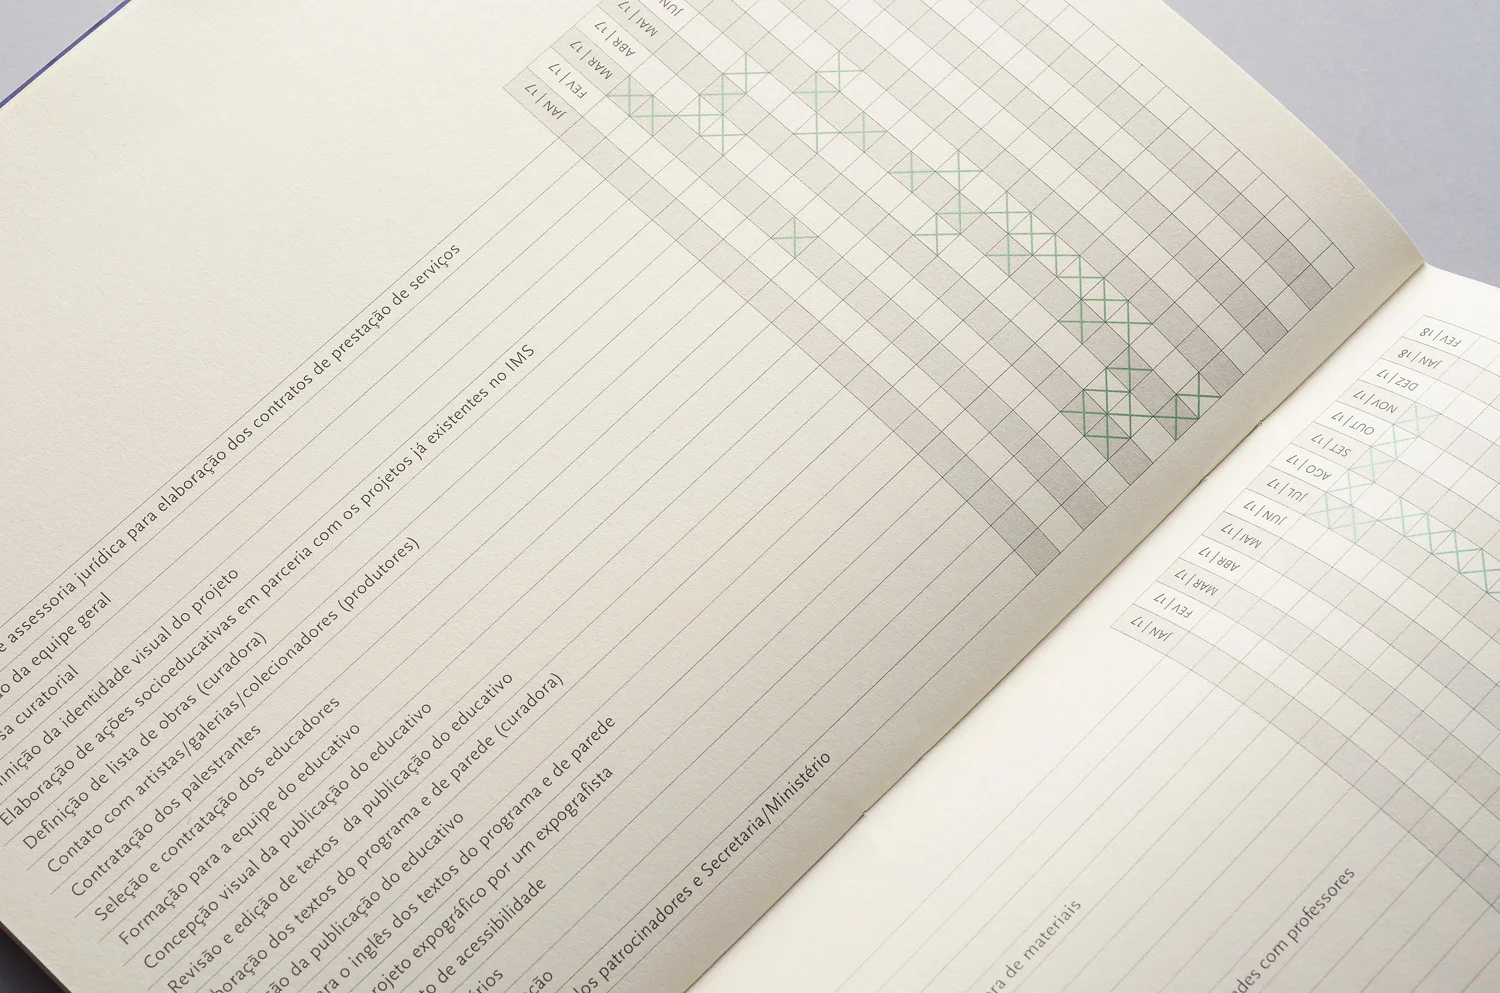 JUN
MAI | 17
ABR | 17
MAR | 17
FEV | 17
JAN | 17
e assessoria jurídica para elaboração dos contratos de prestação de serviços
da equipe geral
curatorial
da identidade visual do projeto
Elaboração de ações socioeducativas em parceria com os projetos já existentes no IMS
Definição de lista de obras (curadora)
Contato com artistas/galerias/colecionadores (produtores)
Contratação dos palestrantes
Seleção e contratação dos educadores
Formação para a equipe do educativo
Concepção visual da publicação do educativo
Revisão e edição de textos da publicação do educativo
dos textos do programa e de parede (curadora)
da publicação do educativo
o inglês dos textos do programa e de parede
expográfico por um expografista
de acessibilidade
patrocinadores e Secretaria/Ministério
FEV | 18
JAN | 18
DEZ | 17
NOV | 17
OUT | 17
SET | 17
AGO | 17
JUL | 17
JUN | 17
MAI | 17
ABR | 17
MAR | 17
FEV | 17
JAN | 17
de materiais
com professores